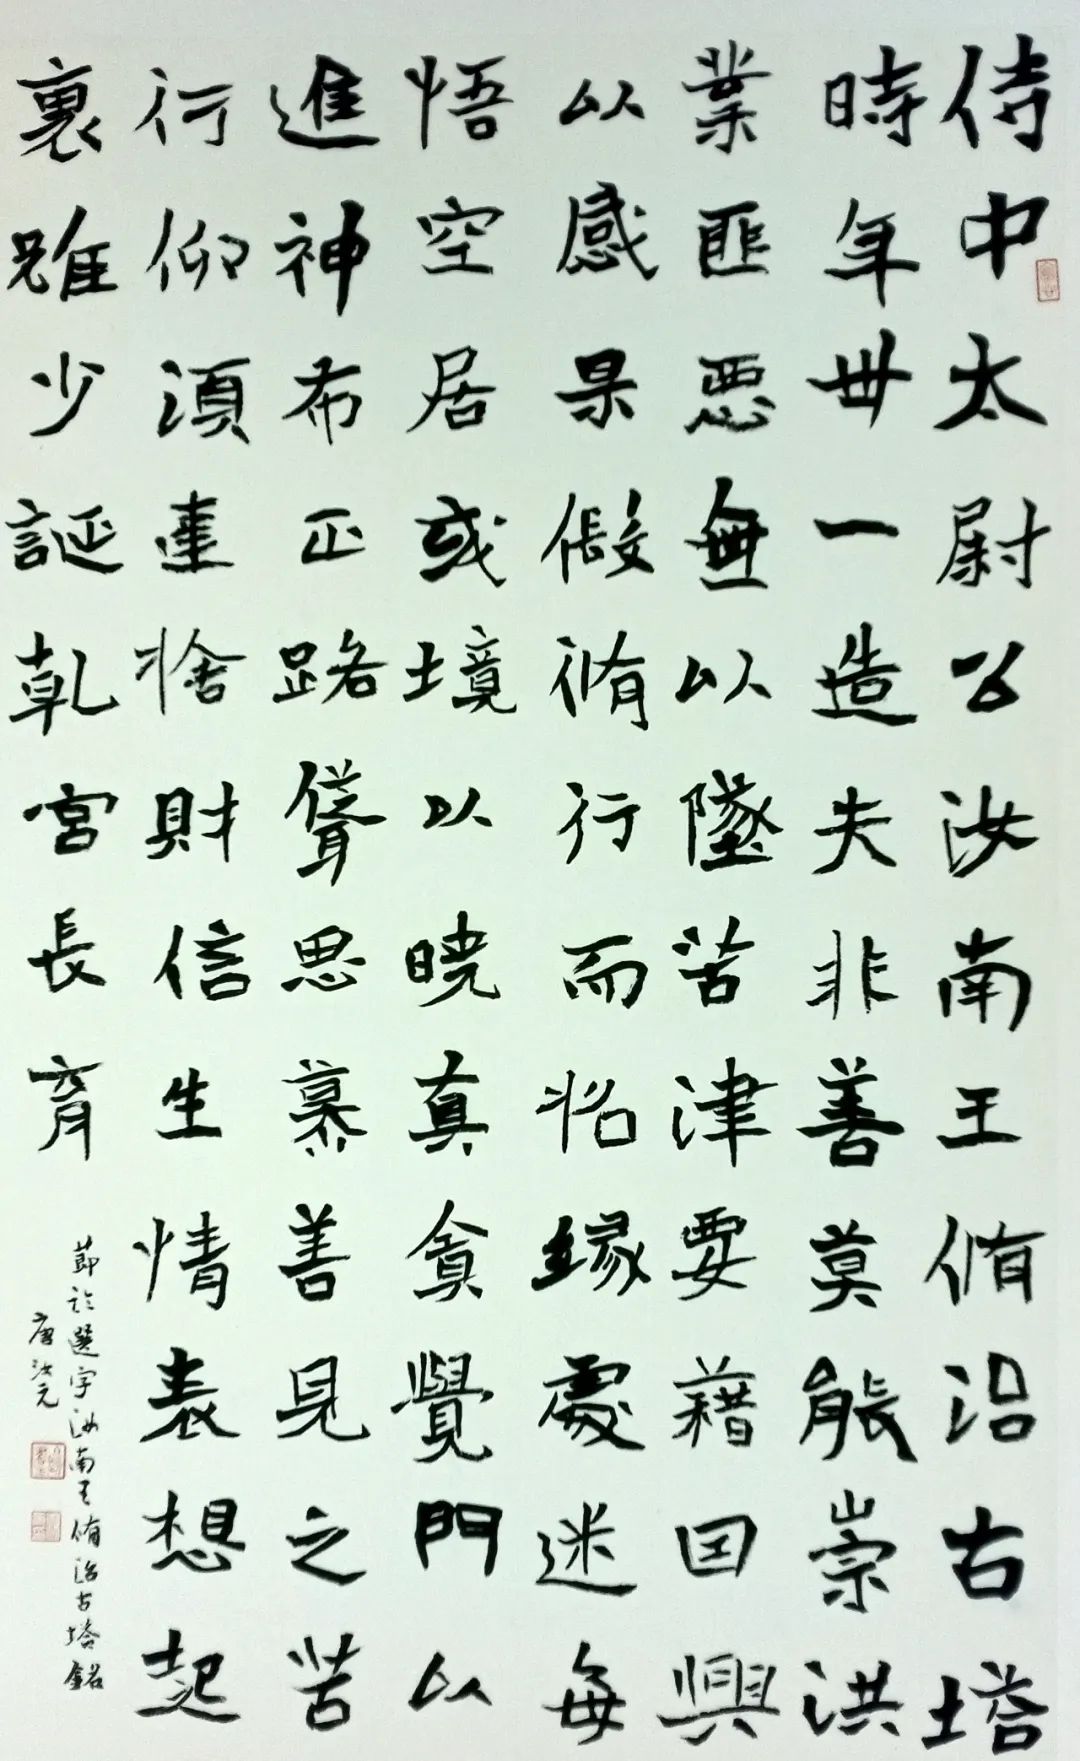 侍中太尉公汝南王脩治古塔
時年卅一造夫非善莫能崇洪
業匪惡無以墜苦津要藉因興
以感果假脩行而招緣處迷每
悟空居或境以曉真貪覺門以
進神布正路聳思慕善見之苦
行仰須達捨財信生情表想起
裏雖少誕乾宮長育
節於選字汝南王脩治古塔銘
唐汝元